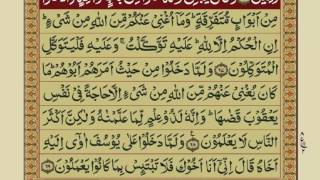 مِنْ اَبْوَابٍ مُّتَفَرِّقَةٍ ؕ وَمَاۤ اُغْنِیْ عَنْكُمْ مِّنَ اللّٰهِ مِنْ شَیْءٍ ؕ
اِنِ الْحُكْمُ اِلَّا لِلّٰهِ ؕ عَلَیْهِ تَوَكَّلْتُ ۚ وَعَلَیْهِ فَلْیَتَوَكَّلِ
الْمُتَوَكِّلُوْنَ ۝۶۷ وَلَمَّا دَخَلُوْا مِنْ حَیْثُ اَمَرَهُمْ اَبُوْهُمْ ؕ مَا
كَانَ یُغْنِیْ عَنْهُمْ مِّنَ اللّٰهِ مِنْ شَیْءٍ اِلَّا حَاجَةً فِیْ نَفْسِ
یَعْقُوْبَ قَضٰىهَا ؕ وَاِنَّهٗ لَذُوْ عِلْمٍ لِّمَا عَلَّمْنٰهُ وَلٰكِنَّ اَكْثَرَ
النَّاسِ لَا یَعْلَمُوْنَ ۝۶۸ وَلَمَّا دَخَلُوْا عَلٰى یُوْسُفَ اٰوٰۤى اِلَیْهِ
اَخَاهُ قَالَ اِنِّیْۤ اَنَا اَخُوْكَ فَلَا تَبْتَىِٕسْ بِمَا كَانُوْا یَعْمَلُوْنَ ۝۶۹